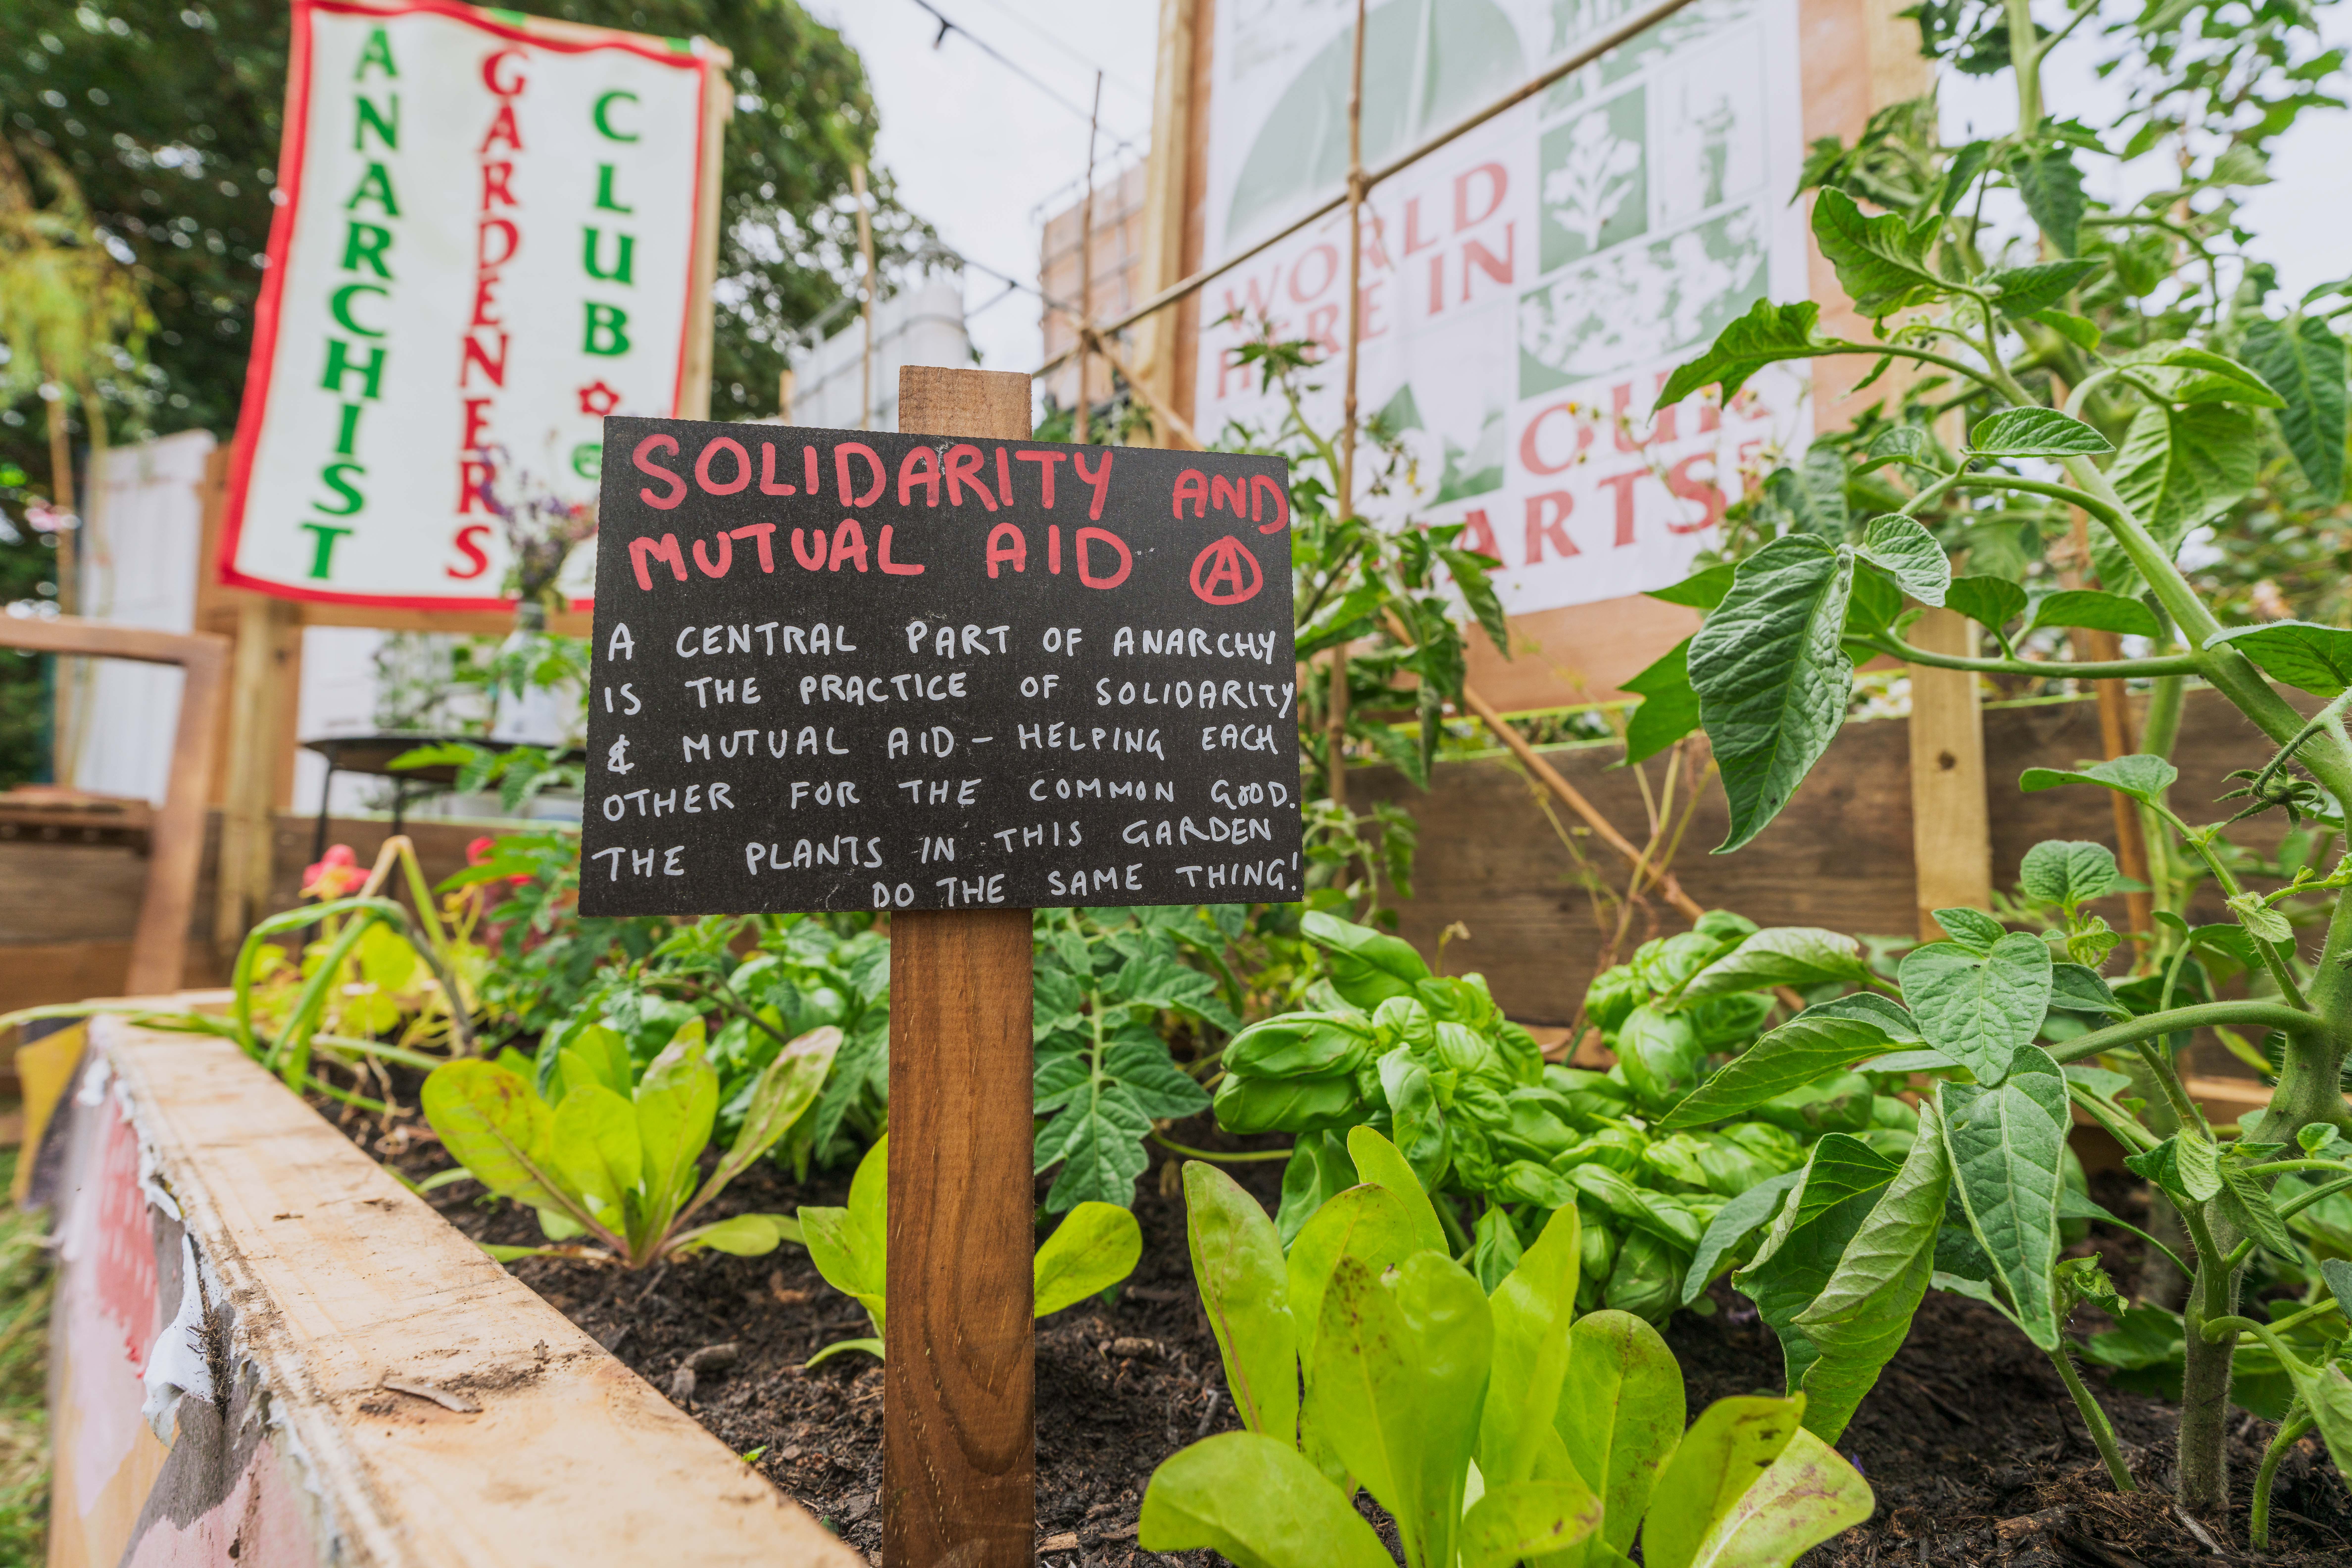 ANARCHIST
GARDENERS
CLUB
WORLD
HERE IN
OUR
SOLIDARITY AND
MUTUAL AID Ⓐ
A CENTRAL PART OF ANARCHY
IS THE PRACTICE OF SOLIDARITY
& MUTUAL AID - HELPING EACH
OTHER FOR THE COMMON GOOD.
THE PLANTS IN THIS GARDEN
DO THE SAME THING!